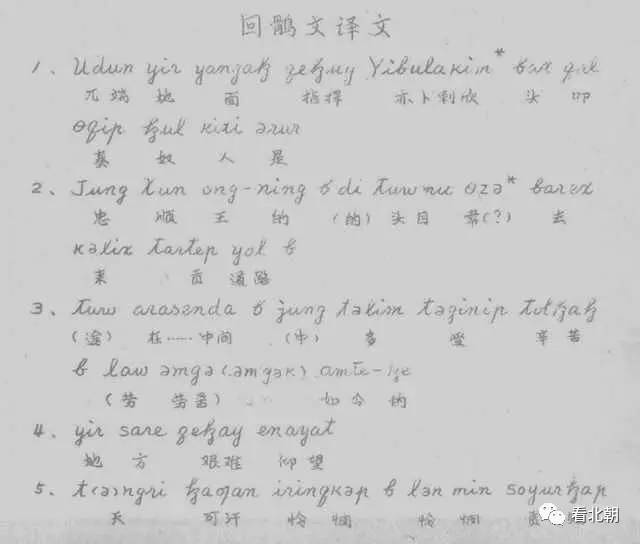 回鹘文译文
1、Udun yir yangaⱪ zeⱪmy Yibulakim* bax
兀端 地 面 指挥 亦卜剌欣 头 叩
ⱪul kixi ərur
奴 人 是
2、Jung xun ong-ning θzə* barex
忠 顺 王 的 (的) 头目 (?) 去
kəlix tartep yol
来 贡 道路
3、tuw arasenda jung təlim təginip totⱪaⱪ
(途) 在……中间 (中) 多 受 辛苦
law əmgə (əmgək) amte-
(劳 劳苦) 如今 的
4、yir sare zeⱪay enayat
地 方 艰难 仰望
5、t(ə)ngri iringkəp lən min soyurⱪap
天 可汗 怜悯 怜悯
看北朝